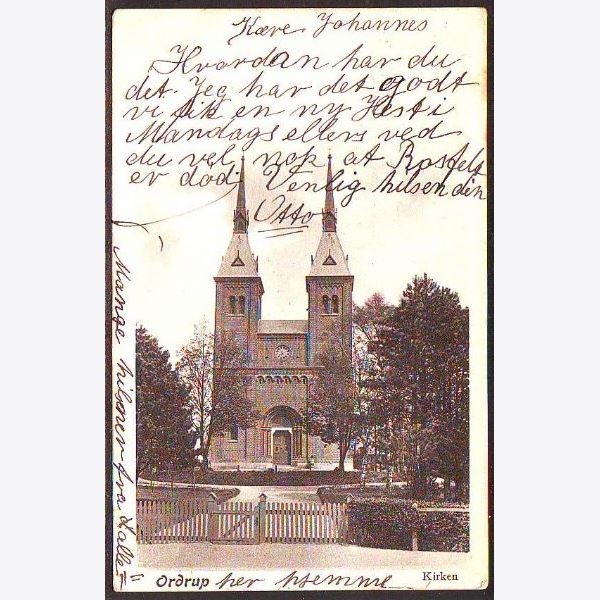 Kære Johannes
Hvordan har du
det. Jeg har det godt
vi fik en ny Hest i
Mandags ellers ved
du vel nok at Rosfelt
er död. Venlig hilsen din
Otto
Mange hilsner fra alle
Ordrup her hjemme Kirken